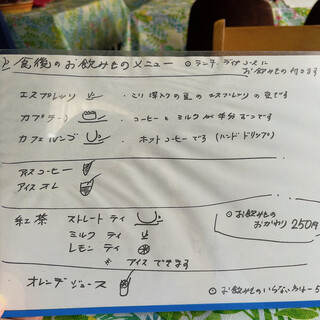 食後のお飲みもの メニュー
○ランチ ディナーコースに
お飲みもの付きます
エスプレッソ ・こい深入りの豆のエスプレッソの豆です
カプチーノ ・コーヒーとミルクが半分ずつです
カフェルンゴ ・ホットコーヒーです(ハンドドリップ)
アイスコーヒー
アイスオレ
紅茶 ストレートティ
ミルクティ
レモンティ
※アイスできます
○お飲みもの
おかわり 250円
オレンジジュース
○お飲みもの いらない方は